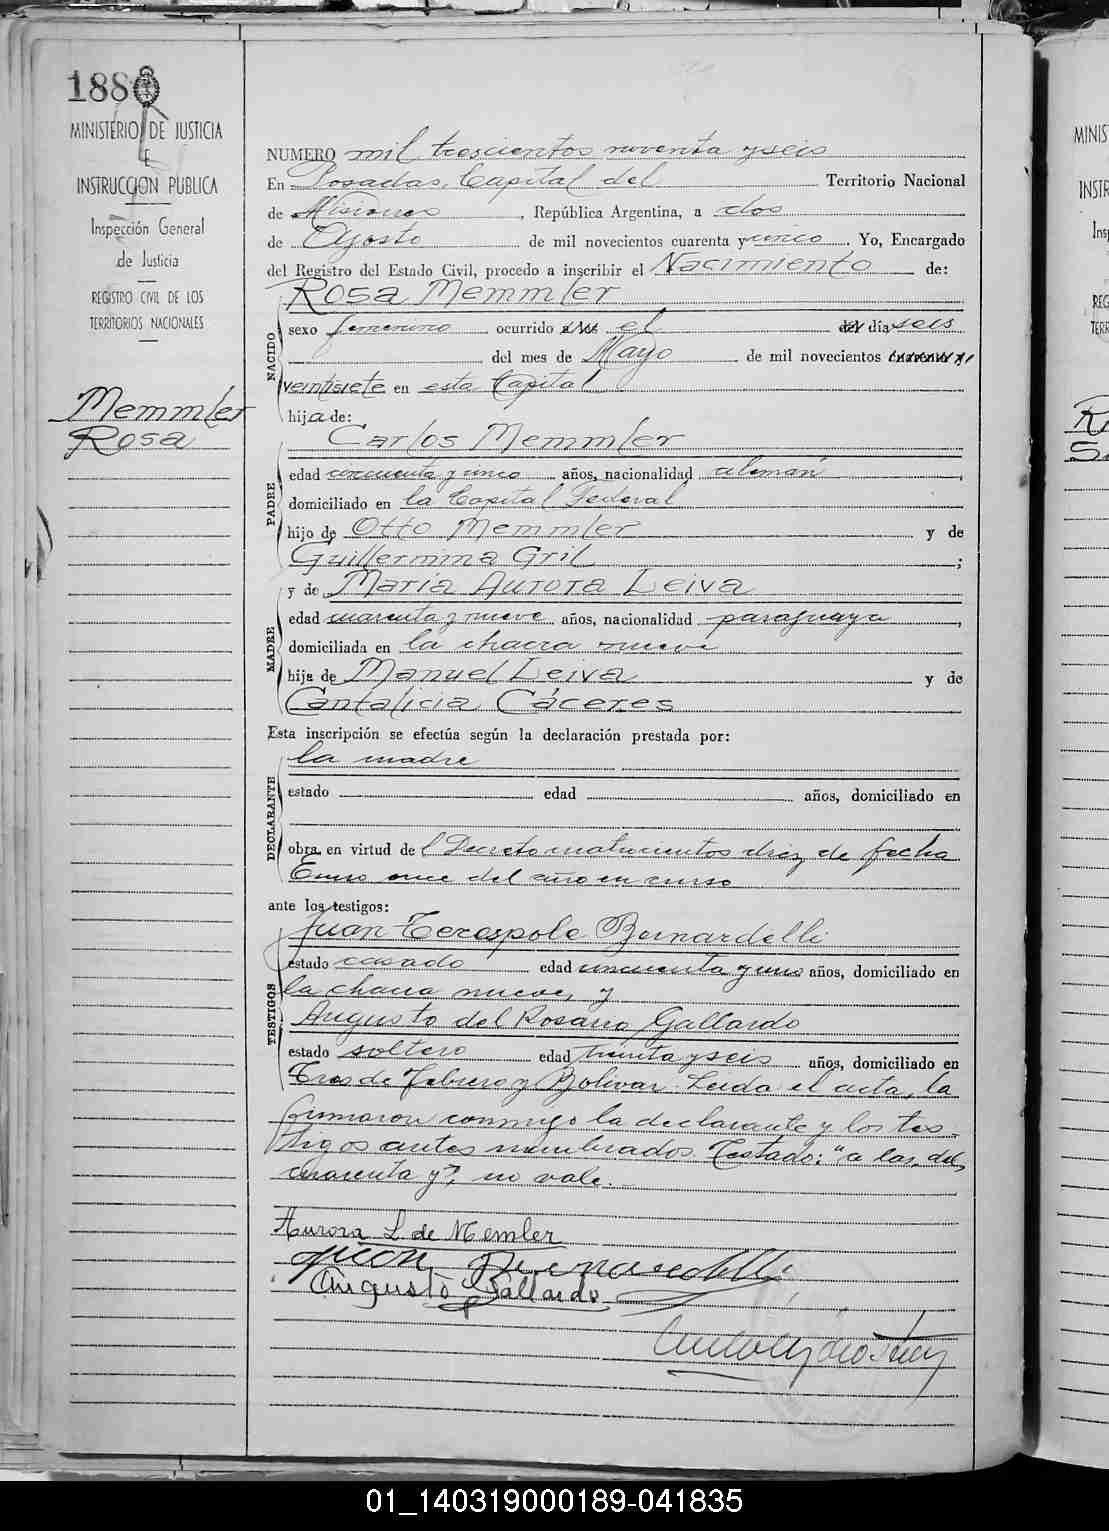 188
MINISTERIO DE JUSTICIA
E
INSTRUCCION PUBLICA
Inspección General
de Justicia
REGISTRO CIVIL DE LOS
TERRITORIOS NACIONALES
Memmler
Rosa
NUMERO mil trescientos noventa y seis
En Posadas, Capital del Territorio Nacional
de Misiones, República Argentina, a dos
de Agosto de mil novecientos cuarenta y cinco. Yo, Encargado
del Registro del Estado Civil, procedo a inscribir el Nacimiento de:
Rosa Memmler
NACIDO
sexo femenino ocurrido el día seis
del mes de Mayo de mil novecientos
veintisiete en esta Capital
hija de:
Carlos Memmler
PADRE
edad cincuenta y cinco años, nacionalidad alemán,
domiciliado en la Capital Federal
hijo de Otto Memmler y de
Guillermina Gril;
y de María Aurora Leiva
MADRE
edad cuarenta y nueve años, nacionalidad paraguaya,
domiciliada en la chacra nueve
hija de Manuel Leiva y de
Cantalicia Cáceres
Esta inscripción se efectúa según la declaración prestada por:
la madre
DECLARANTE
estado edad años, domiciliado en
obra en virtud del Decreto cuatrocientos diez de fecha
Enero once del año en curso
ante los testigos:
Juan Terespolo Bernardelli
TESTIGOS
estado casado edad cincuenta y uno años, domiciliado en
la chacra nueve, y
Augusto del Rosario Gallardo
estado soltero edad treinta y seis años, domiciliado en
Tres de Febrero y Bolivar. Leida el acta, la
firmaron conmigo la declarante y los tes-
tigos antes nombrados. Testado: "a las, del,
cuarenta y", no vale.-
Aurora L de Memler
Juan Bernardelli
Augusto Gallardo
MINIS
INSTR
Ins
REG
TERR
01_140319000189-041835